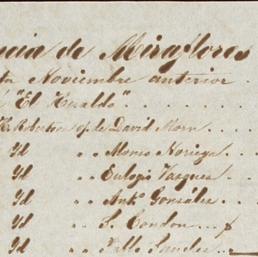 ncia de Miraflores
Noviembre anterior
"El Heraldo"
Robertson op. de David Morn
Id " " Alonso Noriega
Id " " Eulogio Vasquez
Id " " Antº Gonzales
Id " " S. Condon
Id " " Pablo Sanchez